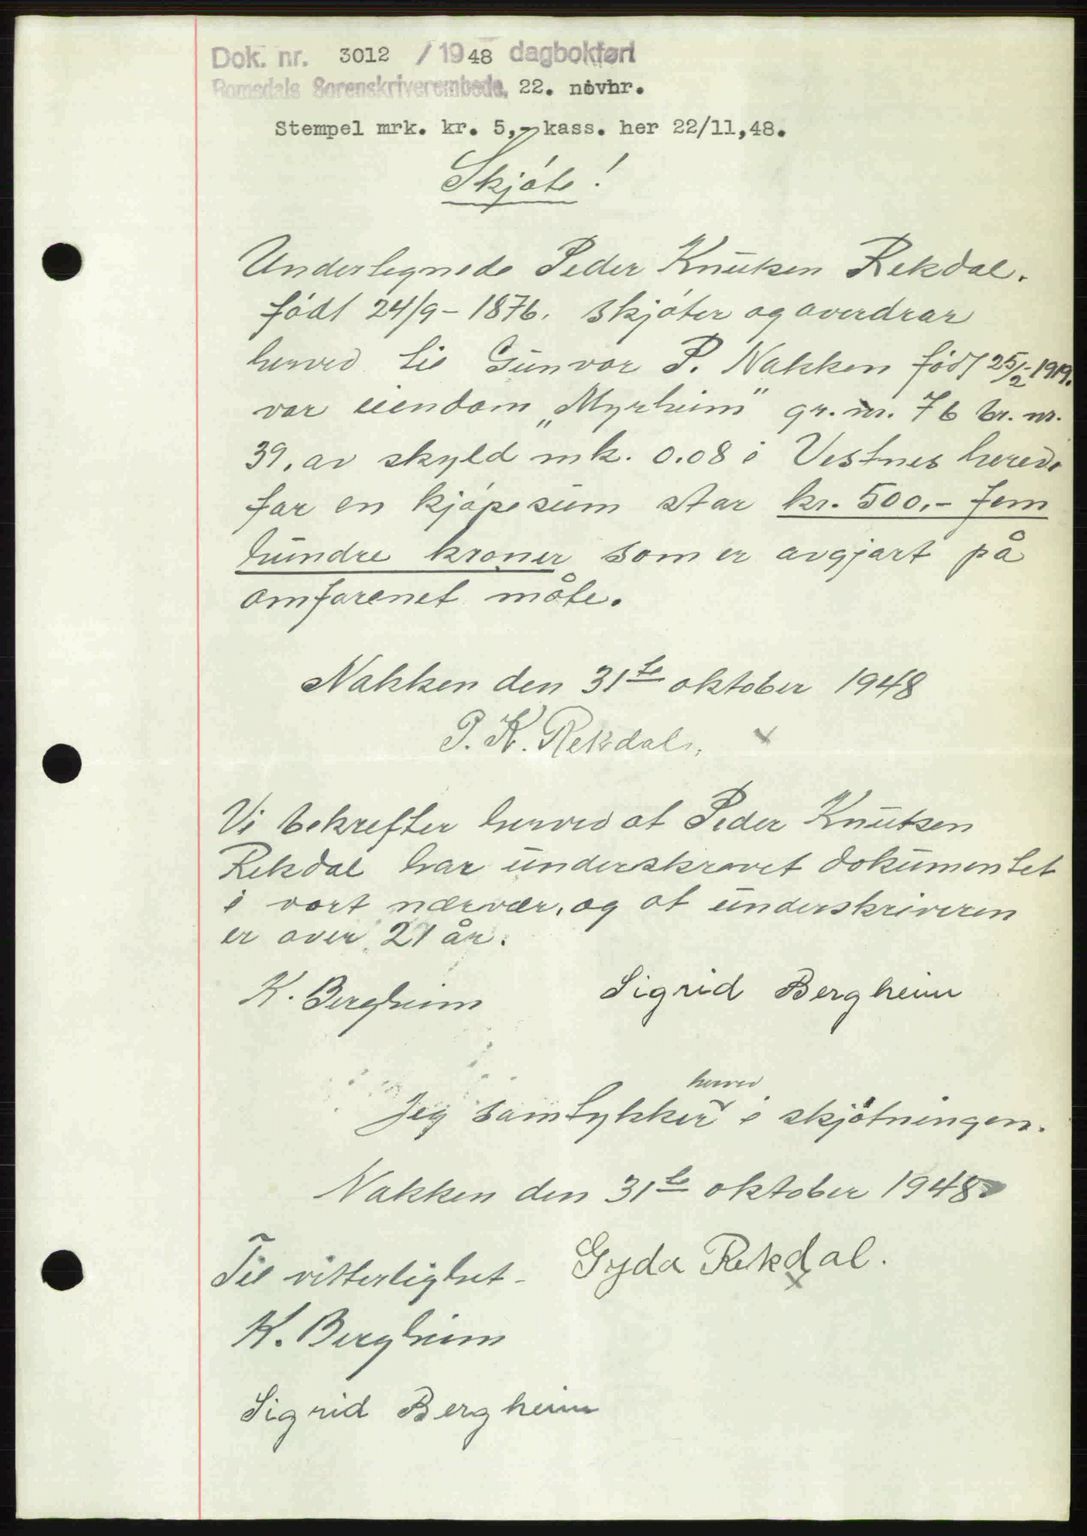 Dok. nr. 3012 / 1948 dagbokført
Romsdals Sorenskriverembede, 22. novbr.
Stempel mrk. kr. 5,- kass. her 22/11,48.
Skjøte!
Underlegnede Peder Knutsen Rekdal.
født 24/9-1876. skjøter og overdrar
herved til Gunvor P. Nakken født 25/2-1919.
vor eiendom „Myrheim" gr. nr. 76 br. nr.
39. av skyld mk. 0.08 i Vestnes herede
for en kjøpesum stor kr. 500,- fem
hundre kroner som er avgjort på
omforenet måte.
Nakken den 31te oktober 1948
P. K. Rekdal.
Vi bekrefter herved at Peder Knutsen
Rekdal har underskrevet dokumentet
i vort nærvær, og at underskriveren
er over 21 år.
K. Bergheim Sigrid Bergheim
herved
Jeg samtykker i skjøtningen.
Nakken den 31te oktober 1948
Til vitterlighet - Gyda Rekdal.
K. Bergheim
Sigrid Bergheim